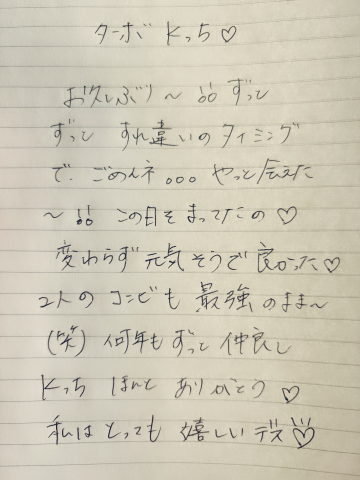 ターボ Kっち♡
お久しぶり〜!! ずっと
ずっと すれ違いのタイミング
で ごめんネ。。。やっと会えた
〜!! この日をまってたの♡
変わらず元気そうで良かった♡
2人のコンビも最強のまま〜
(笑) 何年もずっと仲良し
Kっち ほんと ありがとう♡
私はとっても嬉しいデス♡